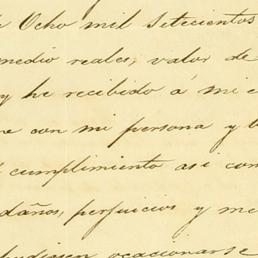 Ocho mil setecientos
medio reales, valor de
y he recibido á mi
con mi persona y
cumplimiento asi com
daños, perjuicios y me
pudiesen ocacionarse